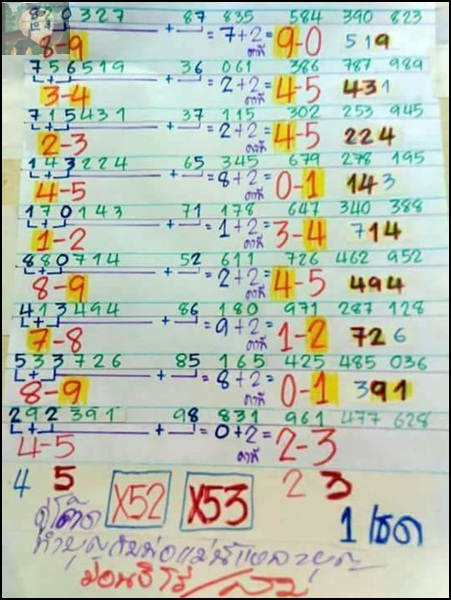 327 87 835 584 390 823
+ = 7+2= 9-0 519
8-9 คาที่
756519 36 061 386 787 989
+ + = 2+2= 4-5 431
3-4 คาที่
715431 37 115 302 253 945
+ + = 2+2= 4-5 224
2-3 คาที่
143224 65 345 679 278 195
+ + = 8+2= 0-1 143
4-5 คาที่
170143 71 178 647 340 388
+ + = 1+2= 3-4 714
1-2 คาที่
880714 52 611 726 462 952
+ + = 2+2= 4-5 494
8-9 คาที่
413494 86 180 971 287 128
+ + = 9+2= 1-2 726
7-8 คาที่
533726 85 165 425 485 036
+ + = 8+2= 0-1 391
8-9 คาที่
292391 98 831 961 477 628
+ + = 0+2= 2-3
4-5 คาที่
4 5 X52 X53 2 3
1